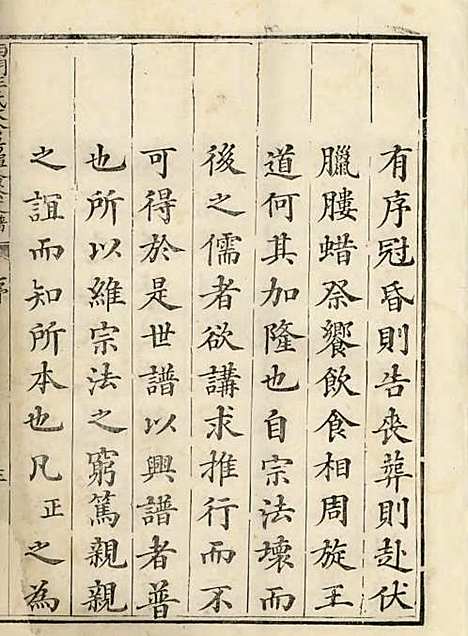 有序冠昏則告喪葬則赴伏
臘膢蜡祭饗飲食相周旋王
道何其加隆也自宗法壞而
後之儒者欲講求推行而不
可得於是世譜以興譜者普
也所以維宗法之窮篤親親
之誼而知所本也凡正之為
序